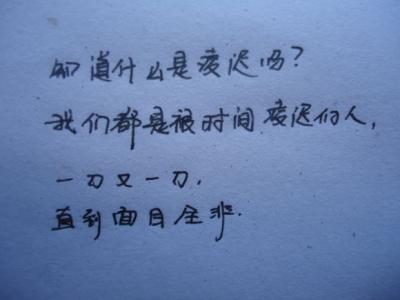 知道什么是凌迟吗?
我们都是被时间凌迟的人,
一刀又一刀.
直到面目全非.